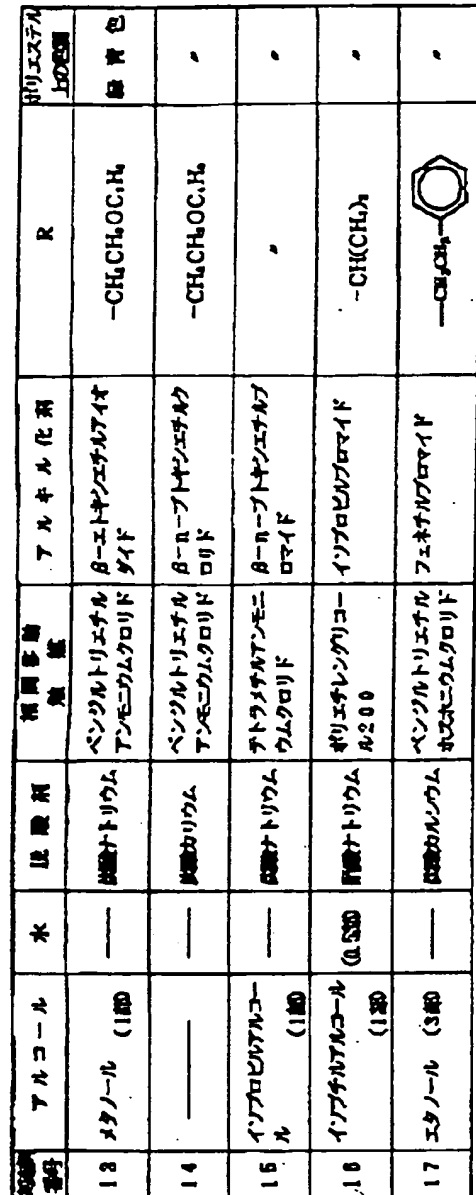 番号
アルコール
水
脱酸剤
相間移動
触媒
アルキル化剤
R
ポリエステル
上の色調
13
メタノール (1部)
——
炭酸ナトリウム
ベンジルトリエチル
アンモニウムクロリド
β-エトキシエチルアイオ
ダイド
-CH₂CH₂OC₂H₅
緑青色
14
——
——
炭酸カリウム
ベンジルトリエチル
アンモニウムクロリド
β-n-ブトキシエチルク
ロリド
-CH₂CH₂OC₄H₉
〃
15
イソプロピルアルコー
ル (1部)
——
炭酸ナトリウム
テトラメチルアンモニ
ウムクロリド
β-n-ブトキシエチルブ
ロマイド
〃
〃
16
イソブチルアルコール
(1部)
(0.5部)
酢酸ナトリウム
ポリエチレングリコー
ル200
イソプロピルブロマイド
-CH(CH₃)₂
〃
17
エタノール (3部)
——
炭酸カルシウム
ベンジルトリエチル
ホスホニウムクロリド
フェネチルブロマイド
—CH₂CH₂—
〃